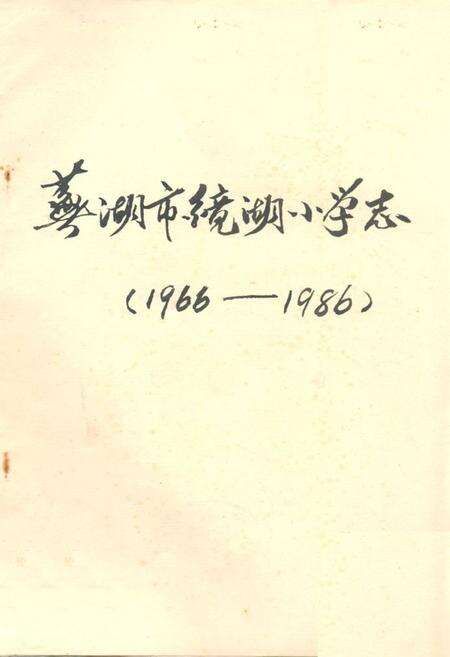 蕪湖市镜湖小学志
(1966—1986)